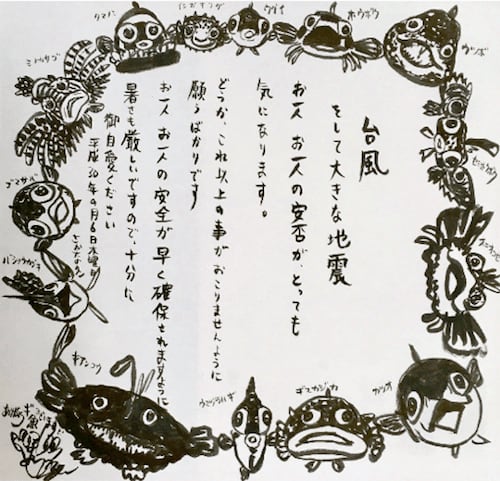 台風
そして大きな地震
お一人お一人の安否が、とっても
気になります。
どうか、これ以上の事がおこりませんように
願うばかりです
お一人お一人の安全が早く確保されますように
暑さも厳しいですので、十分に
御自愛ください
平成30年9月6日木曜日
さかなのおえ
タマバ
ウグイ
ホウボウ
ウツボ
カツオ
ギスカジカ
ウミヅラハギ
キアンコウ
バショウカジキ
ゴマサバ
ミノカサゴ